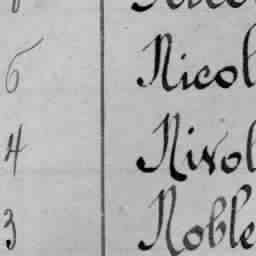 6 Nicol
4 Nivol
3 Noble